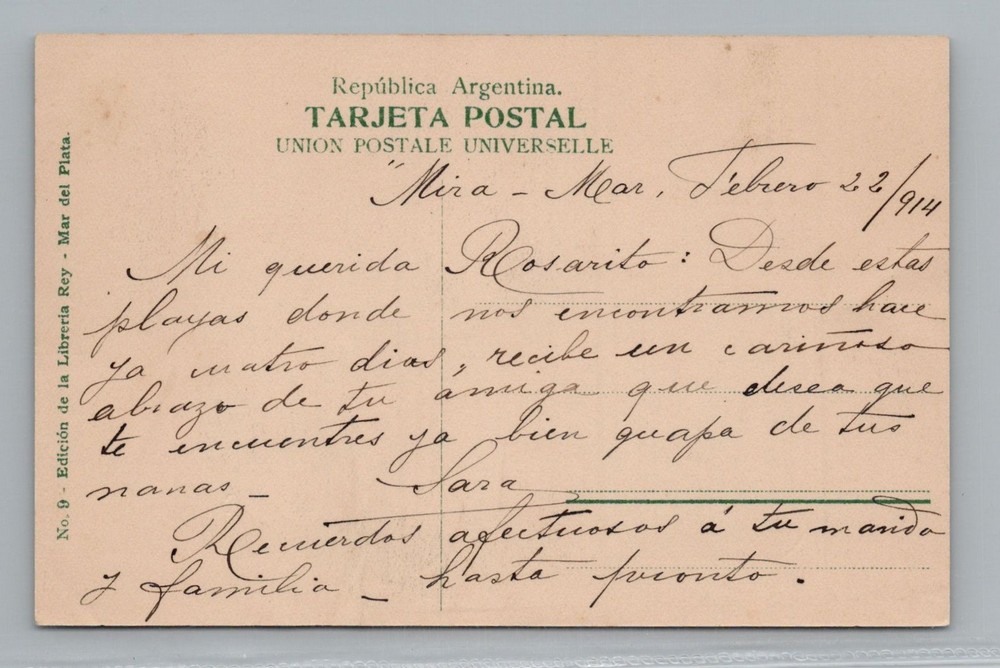 República Argentina.
TARJETA POSTAL
UNION POSTALE UNIVERSELLE
No. 9 - Edición de la Libreria Rey - Mar del Plata.
"Mira - Mar, Febrero 22/914
Mi querida Rosarito: Desde estas
playas donde nos encontramos hace
ya cuatro dias, recibe un cariñoso
abrazo de tu amiga que desea que
te encuentres ya bien guapa de tus
nanas_ Sara
Recuerdos afectuosos á tu marido
y familia_ hasta pronto.